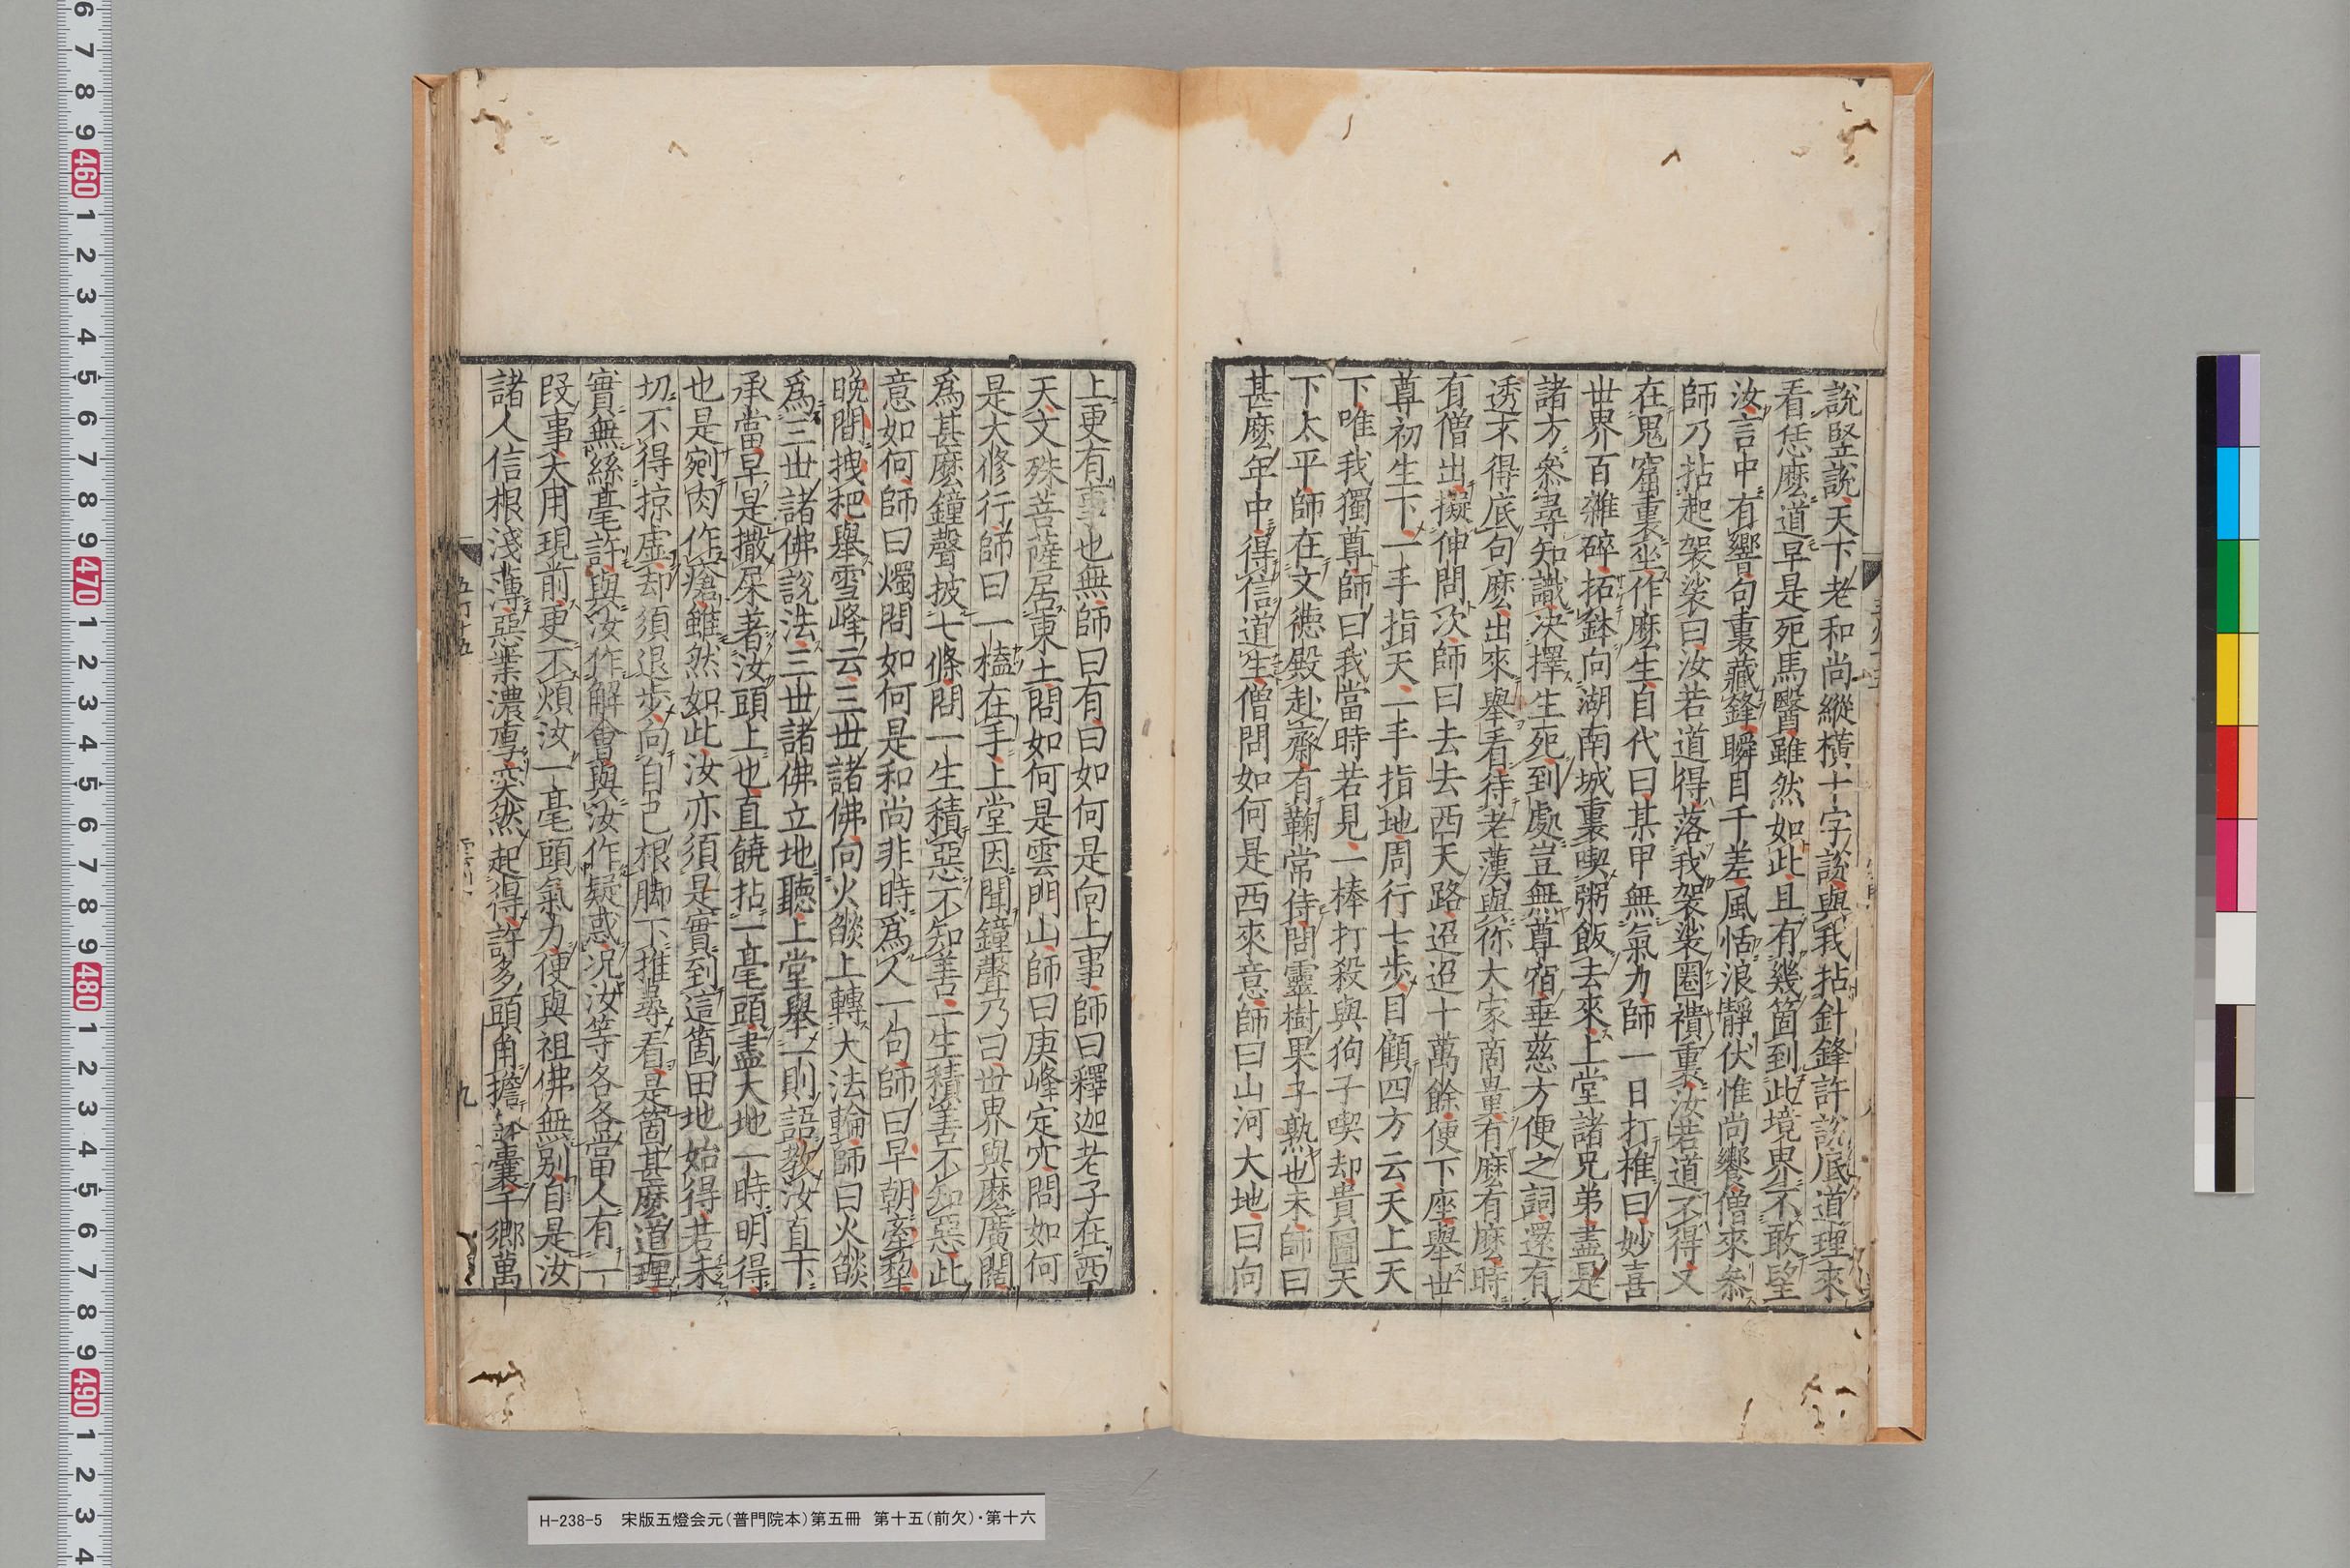 說竪說天下老和尚縱橫十字說與我拈針鋒許說底道理來
看恁麽道早是死馬醫雖然如此且有幾箇到此境界不敢望
汝言中有響句裏藏鋒瞬目千差風恬浪靜伏惟尚饗僧來叅
師乃拈起袈裟曰汝若道得落我袈裟圈襀裏汝若道不得又
在鬼窟裏坐作麽生自代曰某甲無氣力師一日打椎曰妙喜
世界百雜碎拓鉢向湖南城裏喫粥飯去來上堂諸兄弟盡是
諸方叅尋知識决擇生死到處豈無尊宿垂慈方便之詞還有
透不得底句麽出來舉看待老漢與你大家商量有麽有麽時
有僧出擬伸問次師曰去去西天路迢迢十萬餘便下座舉世
尊初生下一手指天一手指地周行七步目顧四方云天上天
下唯我獨尊師曰我當時若見一棒打殺與狗子喫却貴圖天
下太平師在文德殿赴齋有鞠常侍問靈樹果子熟也未師曰
甚麽年中得信道生僧問如何是西來意師曰山河大地曰向
上更有事也無師曰有曰如何是向上事師曰釋迦老子在西
天文殊菩薩居東土問如何是雲門山師曰庚峰定穴問如何
是大修行師曰一榼在手上堂因聞鐘聲乃曰世界與麽廣闊
爲甚麽鐘聲披七條問一生積惡不知善一生積善不知惡此
意如何師曰燭問如何是和尚非時爲人一句師曰早朝牽犂
晚間拽杷舉雪峰云三世諸佛向火燄上轉大法輪師曰火燄
爲三世諸佛說法三世諸佛立地聽上堂舉一則語教汝直下
承當早是撒屎著汝頭上也直饒拈一毫頭盡大地一時明得
也是剜肉作瘡雖然如此汝亦須是實到這箇田地始得若未
切不得掠虛却須退步向自己根脚下推尋看是箇甚麽道理
實無絲毫許與汝作解會與汝作疑惑况汝等各各當人有一
段事大用現前更不煩汝一毫頭氣力便與祖佛無别自是汝
諸人信根淺薄惡業濃厚突然起得許多頭角擔鉢囊千鄉萬
五灯十五
九
H-238-5 宋版五燈会元(普門院本)第五冊 第十五(前欠)・第十六
6 7 8 9 460 1 2 3 4 5 6 7 8 9 470 1 2 3 4 5 6 7 8 9 480 1 2 3 4 5 6 7 8 9 490 1 2 3 4